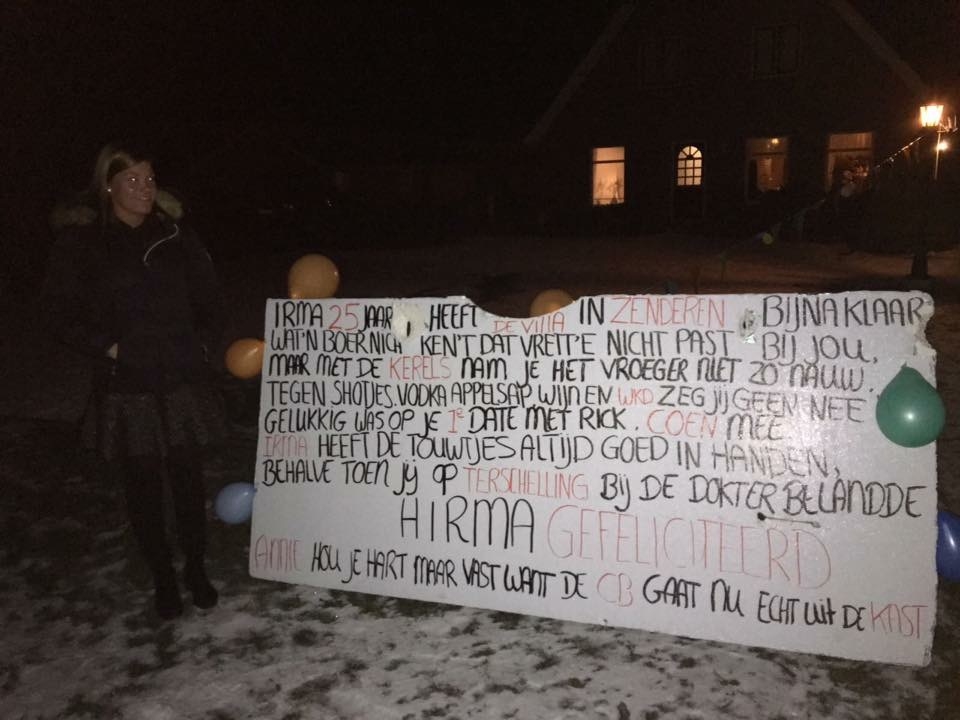 IRMA 25 JAAR HEEFT DE VILLA IN ZENDEREN BIJNA KLAAR
WAT'N BOER NICH KEN'T DAT VRETT'E NICHT PAST BIJ JOU,
MAAR MET DE KERELS NAM JE HET VROEGER NIET ZO NAUW.
TEGEN SHOTJES, VODKA APPELSAP, WIJN EN WKD ZEG JIJ GEEN NEE
GELUKKIG WAS OP JE 1e DATE MET RICK. COEN MEE
IRMA HEEFT DE TOUWTJES ALTIJD GOED IN HANDEN,
BEHALVE TOEN JIJ OP TERSCHELLING BIJ DE DOKTER BELANDDE
HIRMA GEFELICITEERD
ANNIE HOU JE HART MAAR VAST WANT DE CB GAAT NU ECHT UIT DE KAST